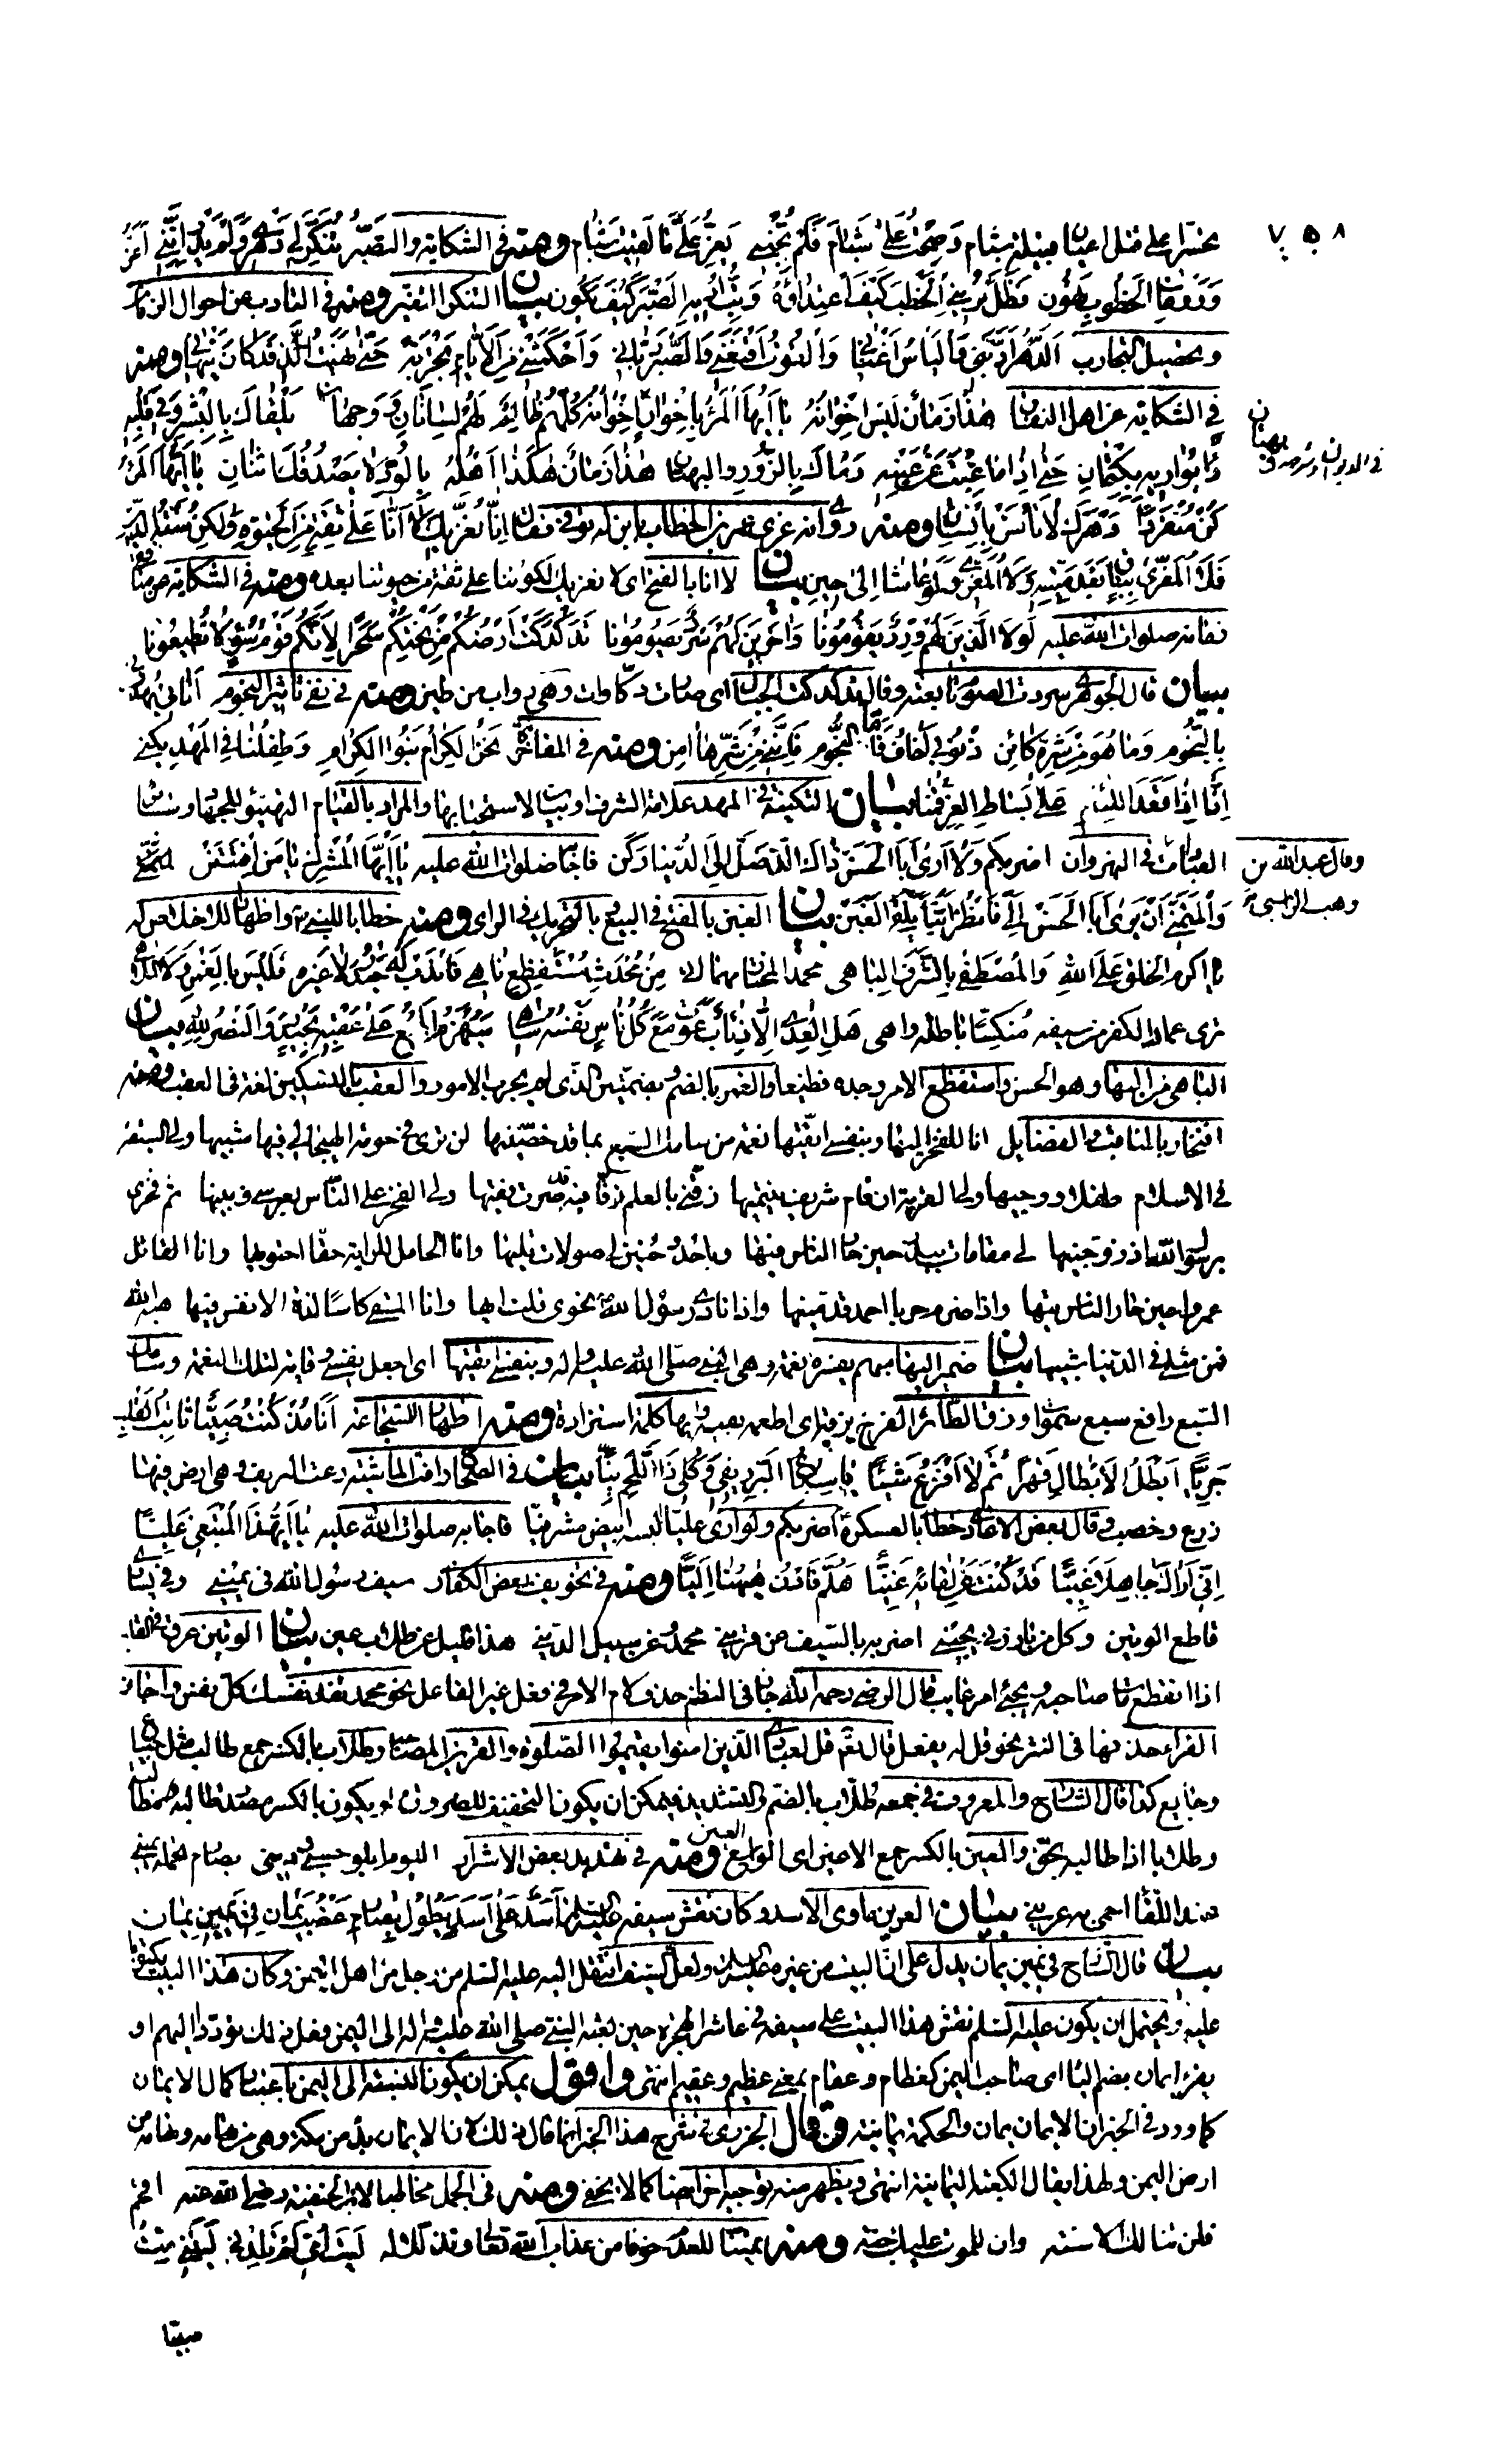 ٧٥٨
تحسّرا على قتل اعيان قبيلة شبام وَصِحْتُ عَلى شبام فَلَم تُجِبْنِي يَعِزُّ عَلَىَّ ما لَقِيَتْ شِبام ومنه في الشكاية والتصبّر تَنَكَّرَ لِي دَهْرِي وَلَمْ يَدْرِ اَنَّنِي اَعِزُّ
وَرَوْعاتُ الخُطُوبِ تَهُون فَظَلَّ يُرِينِي الْخَطْبَ كَيْفَ اعْتِداؤُهُ وَبِتُّ اُرِيهِ الصَّبْرَ كَيْفَ يَكُون بيان التنكر التغير ومنه في التادب من احوال الزمان
وتحصيل التجارب الدَّهْرُ اَدَّبَنِي وَالْيَاْسُ اَغْنانِي وَالْقُوتُ اَقْنَعَنِي وَالصَّبْرُ رَبّانِي وَاَحْكَمَتْنِي مِنَ الْاَيّامِ تَجْرِبَةٌ حَتّى نَهَيْتُ الَّذِي قَدْ كانَ يَنْهانِي ومنه
في الشكاية عن اهل النفاق هٰذا زَمانٌ لَيْسَ اِخْوانُهُ يا اَيُّهَا الْمَرْءُ بِاِخْوان اِخْوانُهُ كُلُّهُمُ ظالِمٌ لَهُمْ لِسانانِ وَ وَجْهان يَلْقاكَ بِالْبِشْرِ وَفِي قَلْبِهِ
داءٌ يُوارِيهِ بِكِتْمانِ حَتّى اِذا ما غِبْتَ عَنْ عَيْنِهِ رَماكَ بِالزُّورِ والبهتان هٰذا زَمانٌ هٰكَذا اَهْلُهُ بِالْوُدِّ لا يَصْدُقُكَ اثْنانِ يا اَيُّهَا الْمَرْءُ
كُنْ مُنْفَرِداً دَهْرَكَ لا تَأْنَسْ بِاِنْسان ومنه روى انه عزى عمر بن الخطاب بابن له توفى فقال اِنّا نُعَزِّيكَ لا اَنّا عَلى ثِقَةٍ مِنَ الْحَيوةِ وَلٰكِنْ سُنَّةُ الدِّينِ
فَلَا الْمُعَزّى بِباقٍ بَعْدَ مَيِّتِهِ وَلَا الْمُعَزِّي وَلَوْ عاشا اِلى حِينِ بيان لا انا بالفتح اى لا نعزيك لكوننا على ثقة من حيوتنا بعده ومنه في الشكاية من منافقى
زمانه صلوات الله عليه لَوْلَا الَّذِينَ لَهُمْ وِرْدٌ يَقُومُونا وَآخَرِينَ لَهُمْ سَرْدٌ يَصُومُونا تَدَكْدَكَتْ اَرْضُكُمْ مِنْ تَحْتِكُمْ سَحَراً لِاَنَّكُمْ قَوْمُ سُوءٍ لا تُطِيعُونا
بيان قال الجوهرى سردت الصوم تابعته وقال تدكدكت الجبال اى صارت دكاوات وهى رواب من طين ومنه في نفى تاثير النجوم اَتانِي يُهَدِّدُنِي
بِالنُّجُومِ وَما هُوَ مِنْ شَرِّهِ كائِن ذُنُوبِي اَخافُ فَاَمَّا النُّجُوم فَاِنَّنِي مِنْ شَرِّها امِن ومنه في المفاخرة نَحْنُ الكِرامُ بَنُوا الكِرامِ وَطِفْلُنا فِي الْمَهْدِ يُكْنى
اِنّا اِذا قَعَدَ اللِّئامُ عَلى بَساطِ الْعِزِّ قُمْنا بيان التكنية في المهد علامة الشرف او بيان الاستحبابها والمراد بالقيام التهيّؤ للجهاد
وقال عبد الله بن وهب الراسبي
في النهروان اضربكم ولا ارى ابا الحسن ذاك الذى ضلّ الى الدنيا ركن فاجابه صلوات الله عليه يا اَيُّهَا الْمُشْرِكُ يا مَنِ افْتَتَنْ
وَالْمُتَمَنِّي اَنْ يَرى اَبَا الْحَسَنْ اِلَيَّ فَانْظُرْ اَيُّنا يَلْقَى الْغَبَنْ بيان الغبن بالفتح في البيع بالتحريك في الراى ومنه خطابا للنبى ص واظهارا للاخلاص له
يا اكرم الخلق عَلَى اللهِ وَالْمُصْطَفى بِالشَّرَفِ الباهى محمد المختار مهما اتى مِنْ مُحْدَثٍ مُسْتَفْظَعٍ ناهى فَانْدُبْ لَهُ حَيْدَرَ لا غيره فَلَيْسَ بِالْغَمْرِ وَلَا اللّاهى
ترى عماد الكفر من سيفه مُنَكَّساً باطله واهى هَلِ الْعِدى اِلّا ذِئابٌ عَوَتْ مَعَ كُلِّ ناسٍ نَفْسُهُ ساهى سَيُهْزَمُ الْجَمْعُ عَلى عَقْبِهِ بِحَيْدَرٍ وَالنَّصْرُ لِلّهِ بيان
الباهى من البهاء وهو الحسن واستفظع الامر وجده فظيعا والغمر بالضم وبضمتين الذى لم يجرب الامور والعقب بالتسكين لغة في العقب ومنه
افتخارا بالمناقب والفضايل انا للفخر اليها وبنفسى اتّقيها نعمة من سامك السبع بما قد خصّنيها لن ترى في حومة الهيجا لى فيها شبيها ولى السبقة
في الاسلام طفلا ووجيها ولى القربة ان قام شريف ينتميها زقّنى بالعلم زقّا فيه قد صرت فقيها ولى الفخر على الناس بعرسى وبنيها ثم فخرى
برسول الله اذ زوّجنيها لى مقامات ببدر حين حار الناس فيها وباحد وحنين لى صولات تليها وانا الحامل للراية حقا احتويها وانا القاتل
عمروا حين حار الناس تيها واذا اضرم حربا احمد قدّمنيها واذا نادى رسول الله نحوى قلت ايها وانا المسقى كاسا لذة الانفس فيها هبة الله
فمن مثلى في الدنيا شبيها بيان ضمير اليها مبهم يفسره نعمة وهى النبى صلى الله عليه واله وبنفسى اتقيها اى اجعل نفسى وقاية لتلك النعمة وسامك
السبع رافع سبع سموات وزق الطائر الفرخ يزقه اى اطعمه بفيه وايها كلمة استزادة ومنه اظهارا للشجاعة اَنَا مُذْ كُنْتُ صَبِيّاً ثابِتُ الْقَلْبِ
جَرِيّاً اُبْطِلُ الْاَبْطالَ قَهْراً ثُمَّ لا اَفْزَعُ شَيْئاً يا سِباعَ الْبَرِّ رِيفِي وَكُلِي ذَا اللَّحْمَ نِيّاً بيان في الصحاح رافت الماشية رعت الريف وهى ارض فيها
زرع وخصب وقال بعض الاعادى خطابا بالعسكره اضربكم ولو ارى عليّا البسه ابيض مشرفيا فاجابه صلوات الله عليه يا اَيُّهٰذَا الْمُبْتَغِي عَلِيّاً
اِنِّي اَراكَ جاهِلاً غَبِيّاً قَدْ كُنْتَ عَنْ لِقائِهِ غَنِيّاً هَلُمَّ فَادْنُ هٰهُنا اِلَيَّا ومنه في تخويف بعض الكفار سيف رسول الله في يمينى وفي يسارى
قاطع الوتين وكل من بارزنى يجينى اضربه بالسيف عن قرينى محمد وعن سبيل الدين هذا قليل عن طلاب عين بيان الوتين عرق في القلب
اذا انقطع مات صاحبه ويجئ امر غايب قال الرضى رحمه الله جاز في النظم حذف لام الامر في فعل غير الفاعل نحو محمد تفد نفسك كل نفس واجاز
الفراء حذفها في النثر نحو قل له يفعل قال تعالى قل لعبادى الذين امنوا يقيموا الصلوة والقرين المصاحب وطلاب بالكسر جمع طالب مثل جياع
وجايع كذا قال الشارح والمعروف في جمعه طُلّاب بالضم والتشديد فيمكن ان يكون التخفيف للضرورة او يكون بالكسر مصدر طالبه مطالبة
وطلابا اذا طالبه بحق والعين بالكسر جمع الاعين اى الواسع العين ومنه في تهديد بعض الاشرار اليوم ابلو حسبى ودينى بصارم تحمله يمينى
عند اللقاء احمى به عرينى بيان العرين ماوى الاسد وكان نقش سيفه عليه السلام اَسَدٌ عَلى اَسَدٍ يَطُولُ بِصارِمٍ عَضْبٍ يَمانٍ فِي يَمِينِ يَمانِ
بيان قال الشارح في يمين يمان يدل على ان البيت من غيره عليه السلام ولعل السيف انتقل اليه عليه السلام من رجل من اهل اليمن وكان هذا البيت مكتوبا
عليه ويحتمل ان يكون عليه السلام نقش هذا البيت على سيفه في عاشر الهجرة حين بعثه النبى صلى الله عليه واله الى اليمن وفعل ذلك توددا اليهم او
يقرء ايمان بضم الياء اى صاحب اليمن كعظام وعقام بمعنى عظيم وعقيم انتهى واقول يمكن ان يكون النسبة الى اليمن باعتبار كمال الايمان
كما ورد في الخبر ان الايمان يمان والحكمة يمانية وقال الجزرى في شرح هذا الخبر انما قال ذلك لان الايمان بدا من مكة وهى من تهامة وتهامة من
ارض اليمن ولهذا يقال الكعبة اليمانية انتهى ويظهر منه توجيه اخر ايضا كما لا يخفى ومنه في الجمل مخاطبا لابن الحنفية رضى الله عنه اقحم
فلن تنالك الاسنة وان للموت عليك جنّة ومنه تمنّيا للعدم خوفا من عذاب الله تعالى وتذللا له لَيْتَ اُمِّي لَمْ تَلِدْنِي لَيْتَنِي مِتُّ
صبيّا